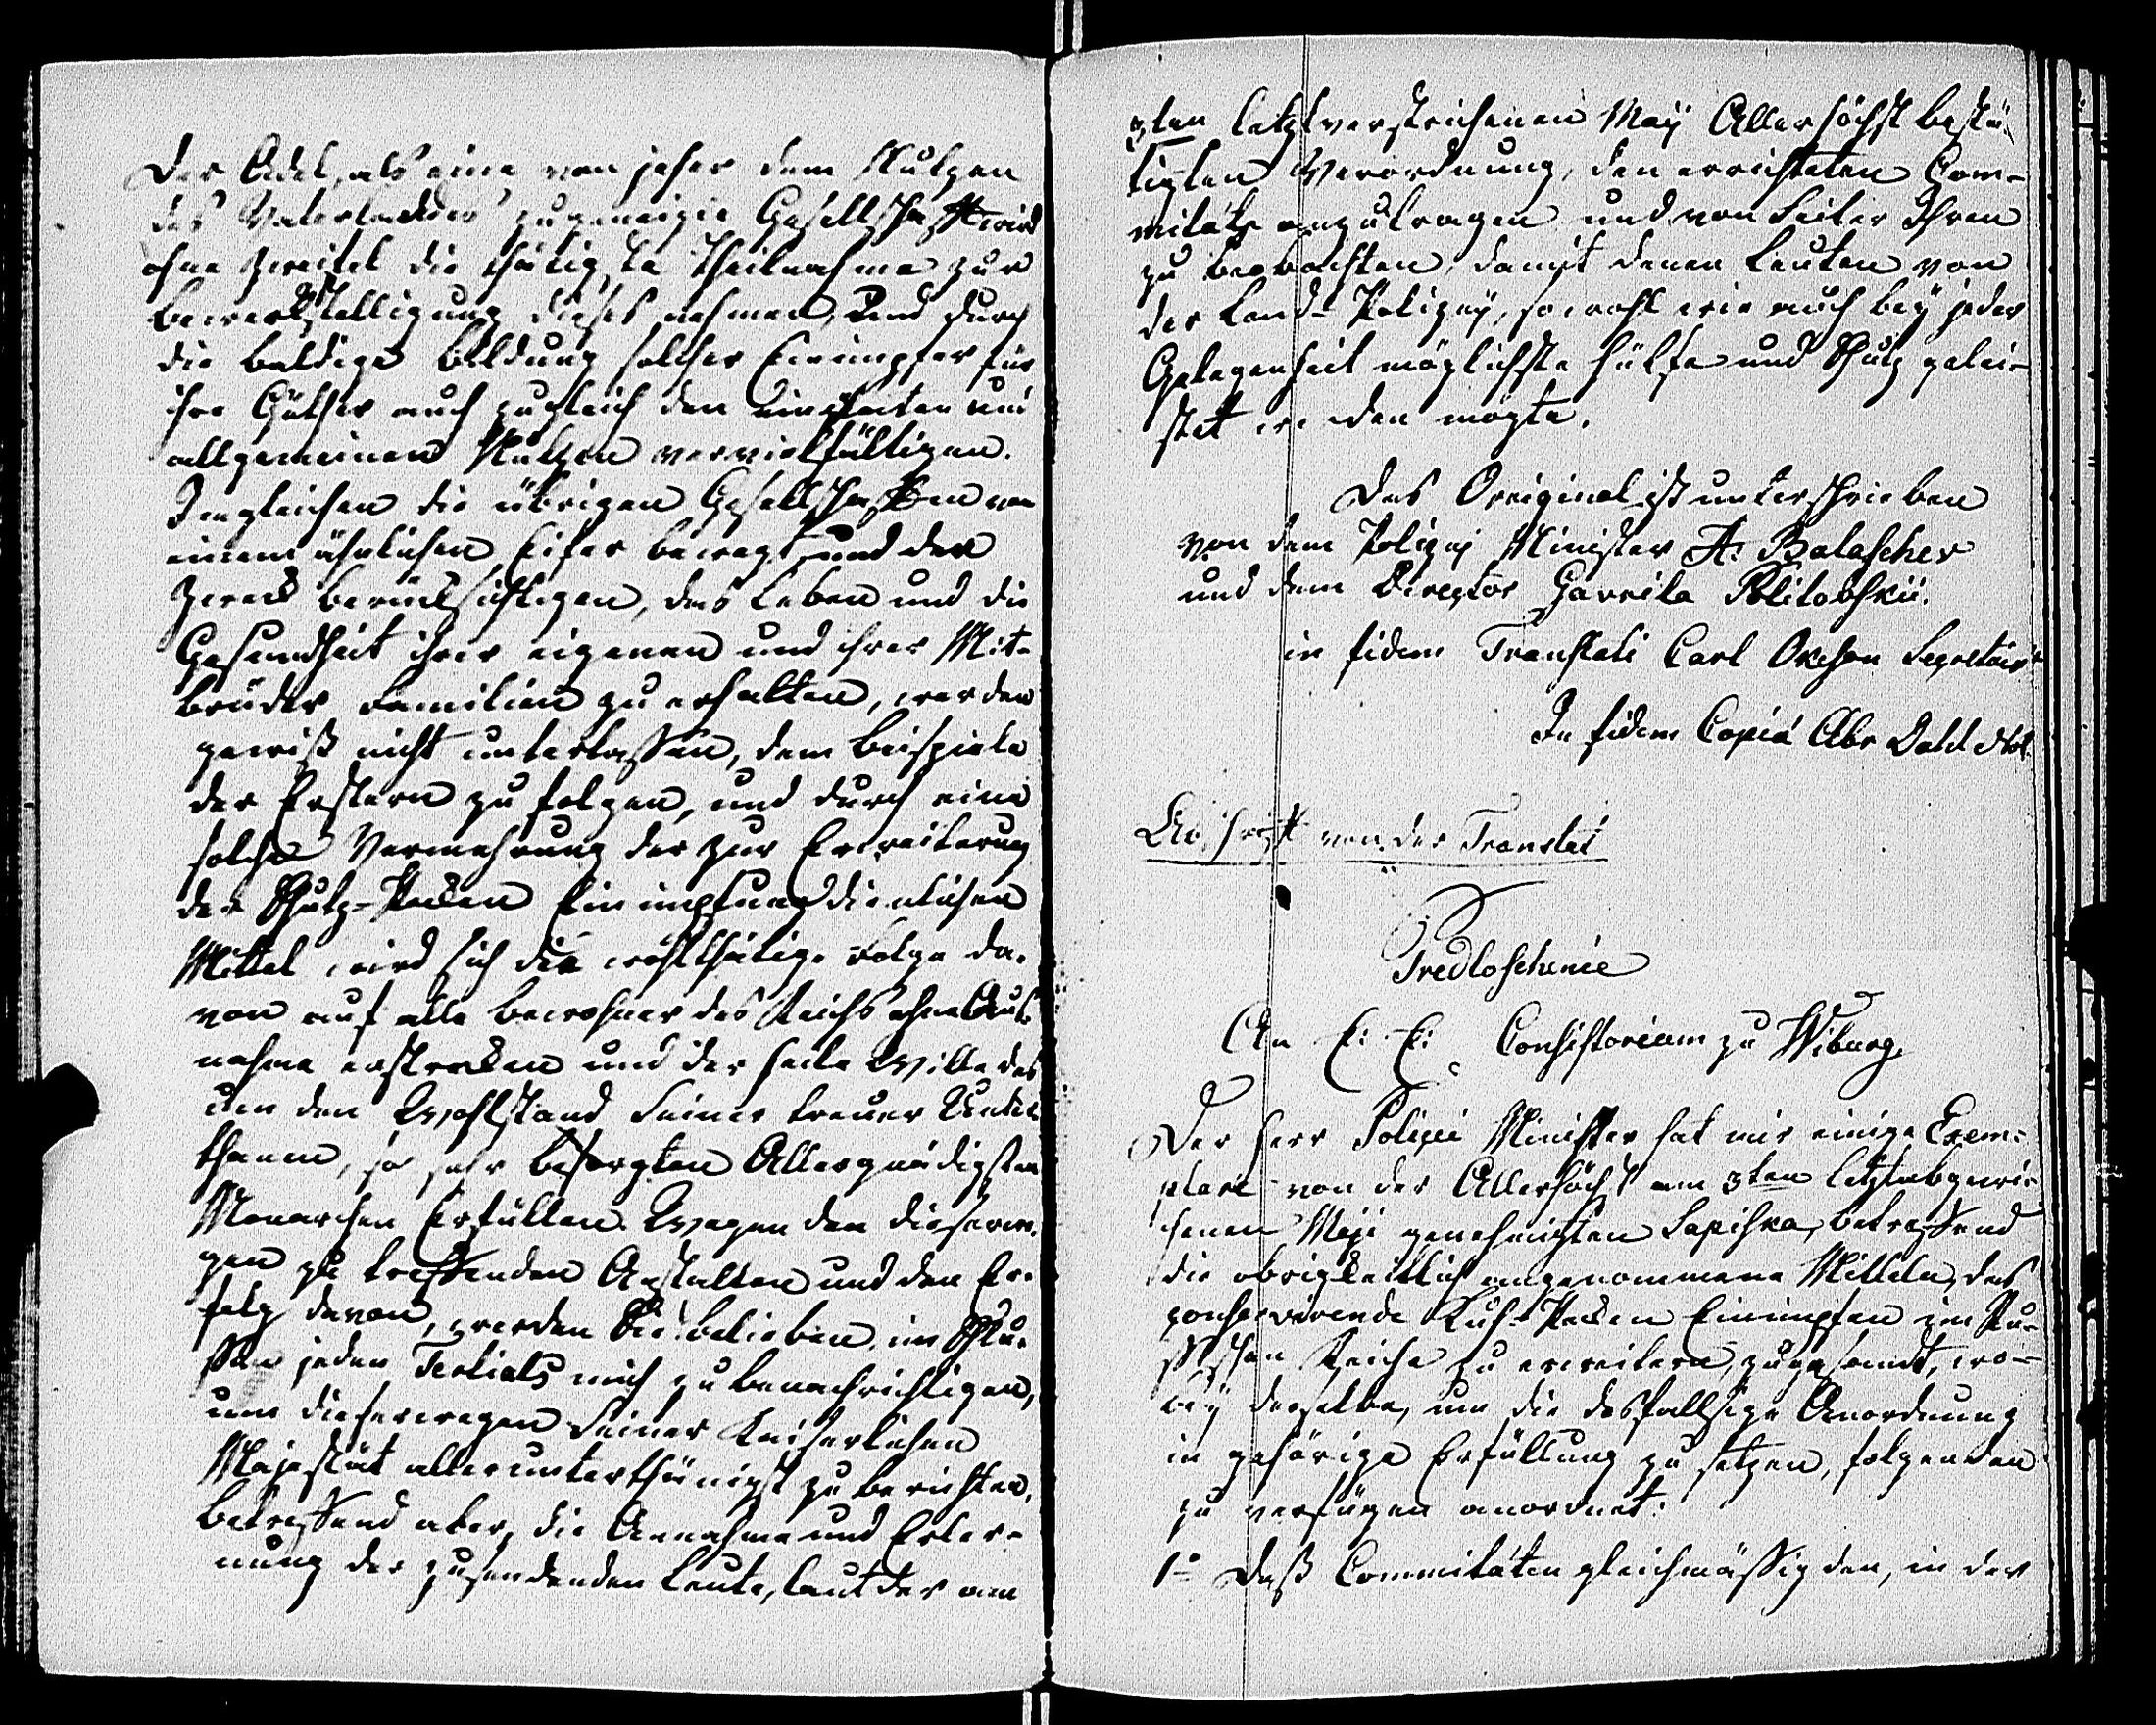 Der Adel, als eine von jeher dem Nutzen
des Vaterlandes zugeneigte Gesellschaft wird
ohne Zweifel die thätigste Theilnahme zur
bewerkstelligung dieses nehmen, und durch
die baldige bildung solcher Einimpfer für
ihre Güther auch zugleich den
allgemeinen Nutzen vervielfältigen.
Imgleichen die übrigen Gesellschaften von
einem ähnlichen Eifer bewegt und den
Zweck berücksichtigen, das Leben und die
Gesundheit ihrer eigenen und ihrer Mit-
brüder Familien zu erhalten, werden
gewiß nicht unterlaßen, dem beispiele
der Erstern zu folgen, und durch eine
solche Vermehrung der zur Erweiterung
der Schutz-Pocken Einimpfung dienlichen
Mittel wird sich die wohlthätige Folge da-
von auf alle bewohner des Reichs ohne Aus-
nahme erstrecken und der heile Wille des
um den Wohlstand Seiner treuer Unter
thanen, so sehr besorgten Allergnädigsten
Monarchen Erfüllen. Wegen den dieserwe-
gen zu treffenden Anstalten und den Er-
folg davon, werden Sie belieben, im Schlu-
ße jeden Tertials mich zu benachrichtigen,
um dieserwegen Seiner Kaiserlichen
Majestät allerunterthänigst zu berichten,
betreffend aber, die Annahme und Erler-
nung der zusendenden Leute, laut der am
3ten letztverstrichenen Maÿ Allerhöchst bestä-
tigten Verordnung, den errichteten Com-
mitäts anzutragen und von Seiter Ihren
zu beobachten, damit denen Leuten von
der Land-Polizeÿ, sowohl wie auch beÿ jeder
Gelegenheit möglichste hülfe und Schutz gelei-
stet werden mögte.
Das Original ist unterschrieben
von dem Polizeÿ Minister A: Balaschev
und dem Director Gavrila Politovskii.
in fidem Translati Carl Secretair
In fidem Copiä Abr Dahl Not.
Abschrift von der Translat
Predloschenie
An E: E: Consistorium zu Wiburg.
Der herr Polizei Minister hat mir einige Exem-
plare von der Allerhöchst am 3ten letztabgewi-
chenen Maji genehmigten Sapiska, betreffend
die obrigkeitlich angenommene Mitteln, das
conservirende Kuh-Pocken Einimpfen im Ru-
ßischen Reiche zu erweitern, zugesandt, wo-
beÿ derselbe, um die desfallsige Anordnung
in gehörige Erfüllung zu setzen, folgenden
zu verfügen anordnet:
1o Daß Commitäten gleichmäßig den, in der